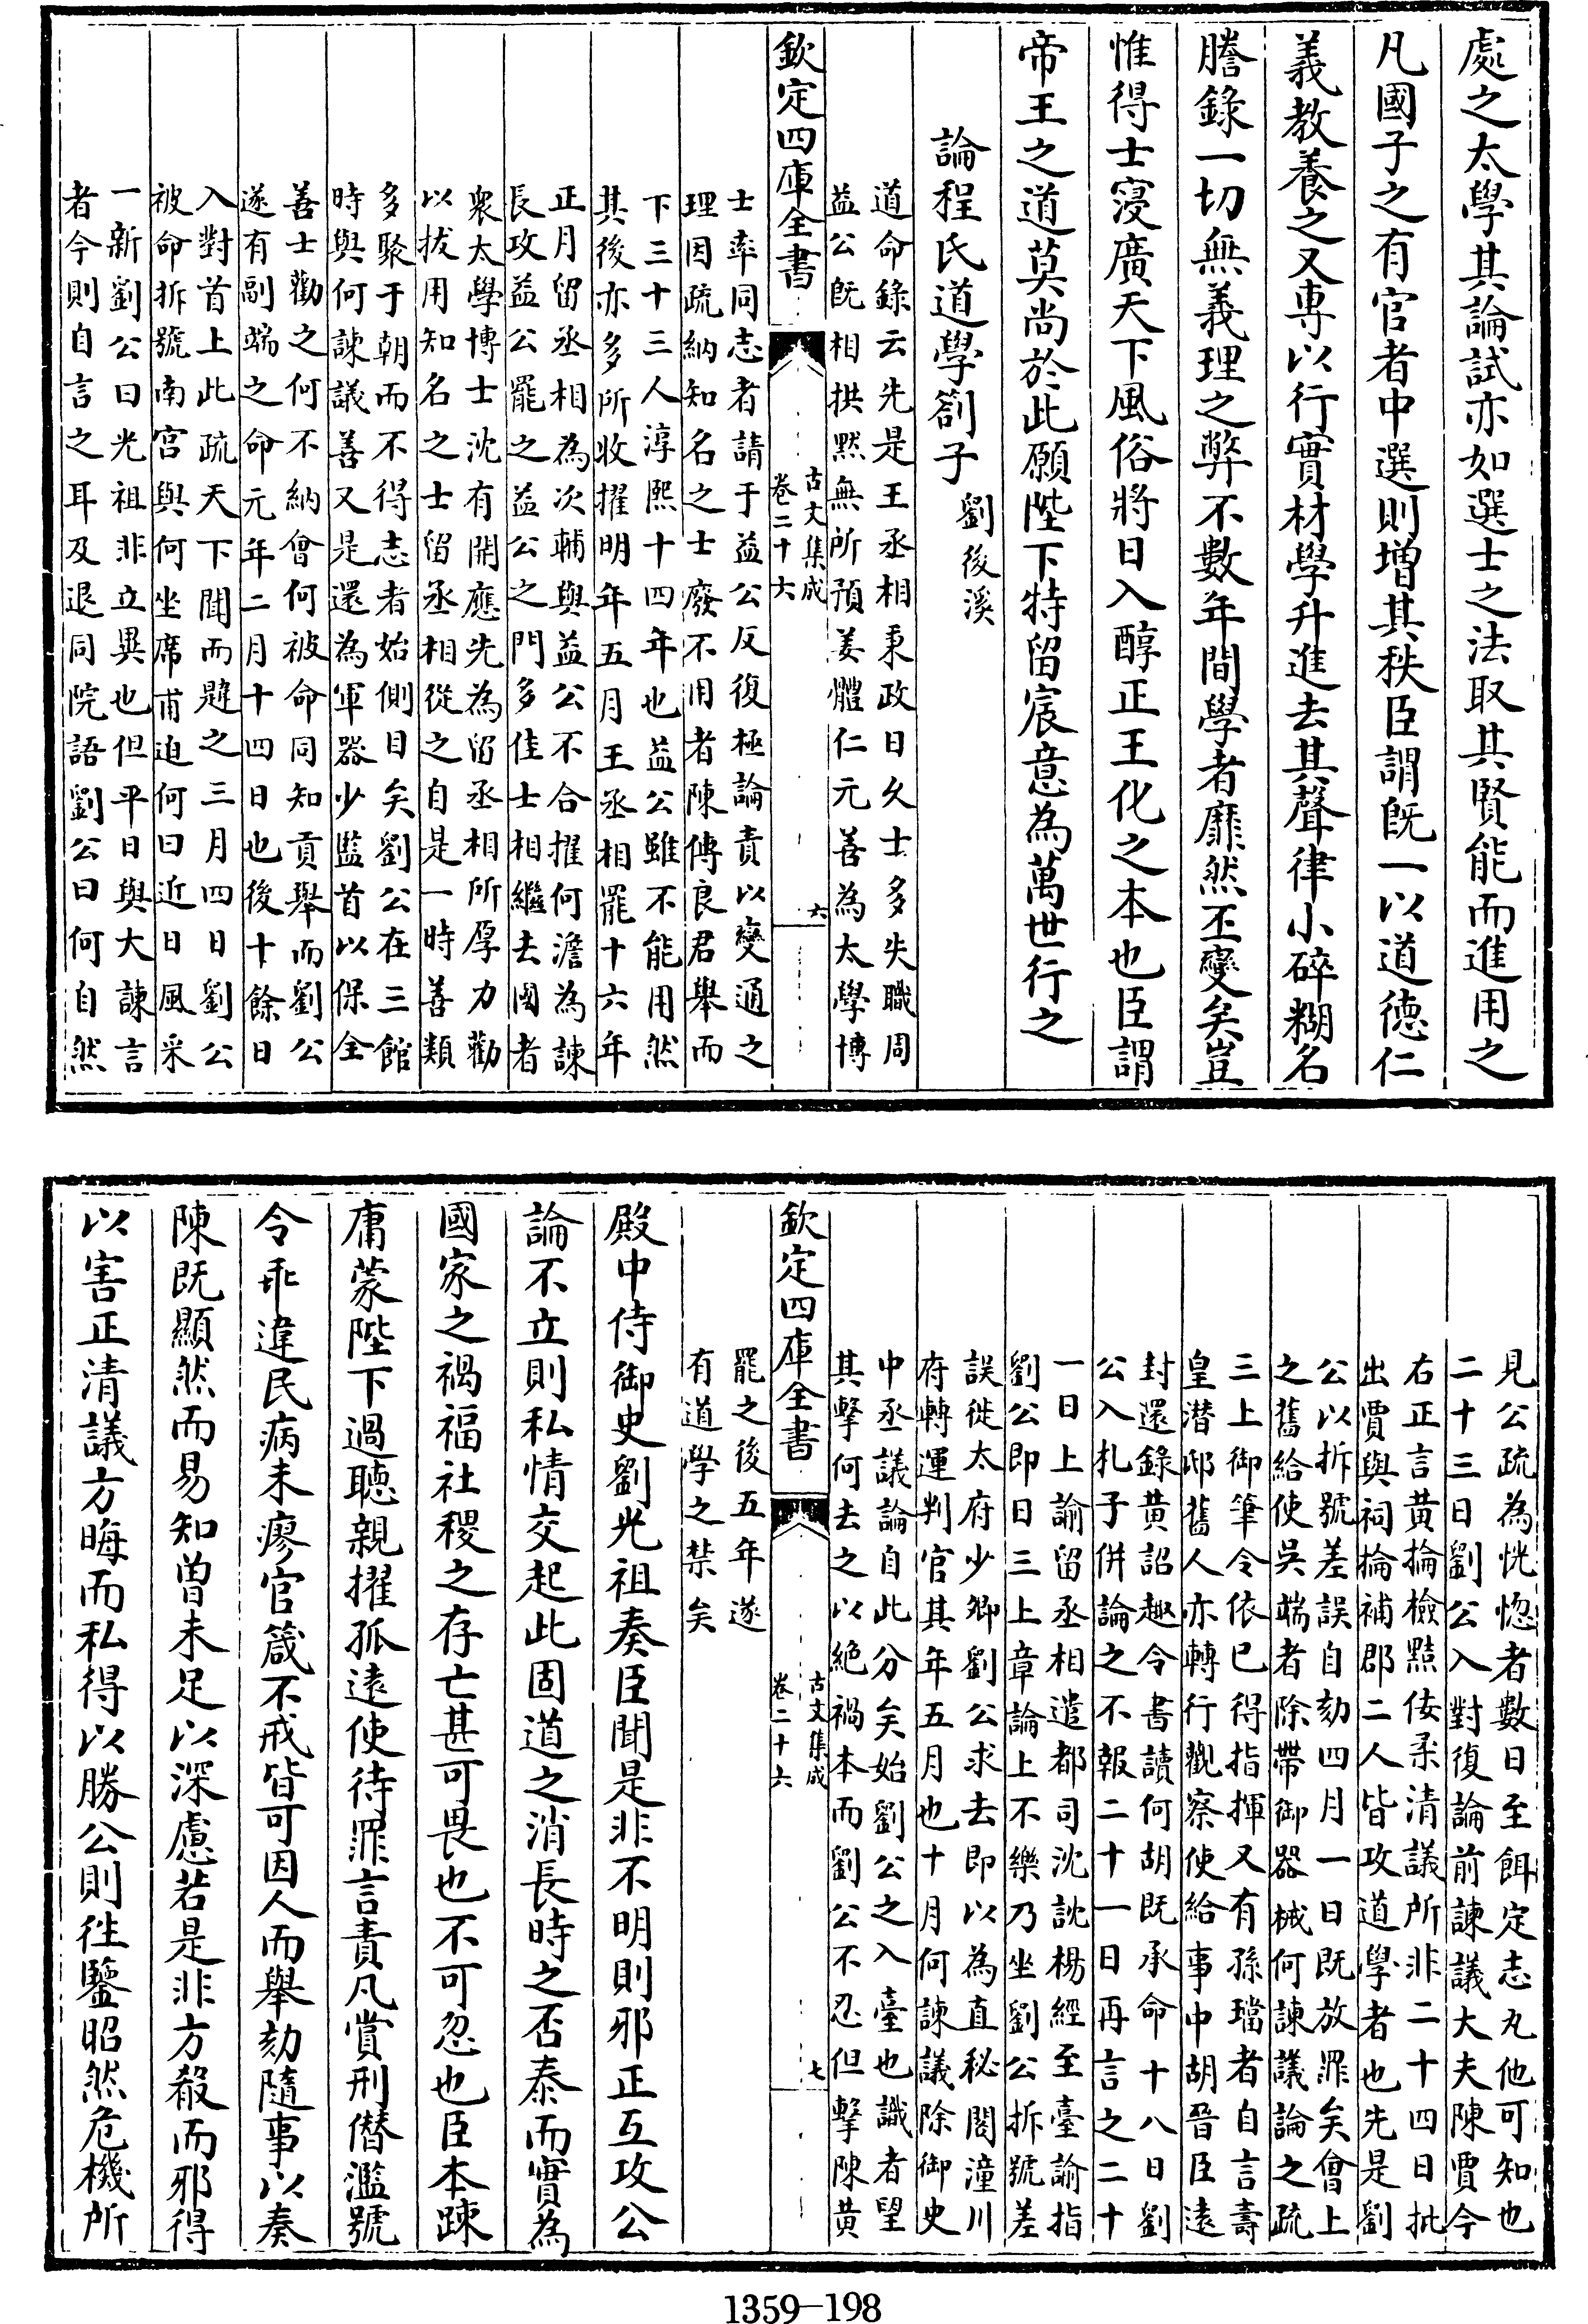 處之太學其論試亦如選士之法取其賢能而進用之
凡國子之有官者中選則增其秩臣謂既一以道德仁
義教養之又專以行實材學升進去其聲律小碎糊名
謄錄一切無義理之弊不數年間學者靡然丕變矣豈
惟得士寖廣天下風俗將日入醇正王化之本也臣謂
帝王之道莫尚於此願陛下特留宸意為萬世行之
論程氏道學劄子 劉後溪
道命錄云先是王丞相秉政日久士多失職周
益公既相拱默無所預姜體仁元善為太學博
欽定四庫全書
古文集成
卷二十六
六
士率同志者請于益公反復極論責以變通之
理因疏納知名之士廢不用者陳傅良君舉而
下三十三人淳熙十四年也益公雖不能用然
其後亦多所收擢明年五月王丞相罷十六年
正月留丞相為次輔與益公不合擢何澹為諫
長攻益公罷之益公之門多佳士相繼去國者
衆太學博士沈有開應先為留丞相所厚力勸
以拔用知名之士留丞相從之自是一時善類
多聚于朝而不得志者始側目矣劉公在三館
時與何諫議善又是還為軍器少監首以保全
善士勸之何不納會何被命同知貢舉而劉公
遂有副端之命元年二月十四日也後十餘日
入對首上此疏天下聞而韙之三月四日劉公
被命拆號南宮與何坐席甫迫何曰近日風采
一新劉公曰光祖非立異也但平日與大諫言
者今則自言之耳及退同院語劉公曰何自然
見公疏為恍惚者數日至餌定志丸他可知也
二十三日劉公入對復論前諫議大夫陳賈今
右正言黃掄檢黠佞柔清議所非二十四日批
出賈與祠掄補郡二人皆攻道學者也先是劉
公以拆號差誤自劾四月一日既放罪矣會上
之舊給使吳端者除帶御器械何諫議論之疏
三上御筆令依已得指揮又有孫璫者自言壽
皇潛邸舊人亦轉行觀察使給事中胡晉臣遠
封還錄黃詔趣令書讀何胡既承命十八日劉
公入札子併論之不報二十一日再言之二十
一日上諭留丞相遣都司沈詵楊經至臺諭指
劉公即日三上章論上不樂乃坐劉公拆號差
誤徙太府少卿劉公求去即以為直秘閣潼川
府轉運判官其年五月也十月何諫議除御史
中丞議論自此分矣始劉公之入臺也識者望
其擊何去之以絕禍本而劉公不忍但擊陳黃
欽定四庫全書
古文集成
卷二十六
七
罷之後五年遂
有道學之禁矣
殿中侍御史劉光祖奏臣聞是非不明則邪正互攻公
論不立則私情交起此固道之消長時之否泰而實為
國家之禍福社稷之存亡甚可畏也不可忽也臣本踈
庸蒙陛下過聽親擢孤遠使待罪言責凡賞刑僭濫號
令乖違民病未瘳官箴不戒皆可因人而舉劾隨事以奏
陳既顯然而易知曾未足以深慮若是非方殽而邪得
以害正清議方晦而私得以勝公則徃鑒昭然危機所
1359-198